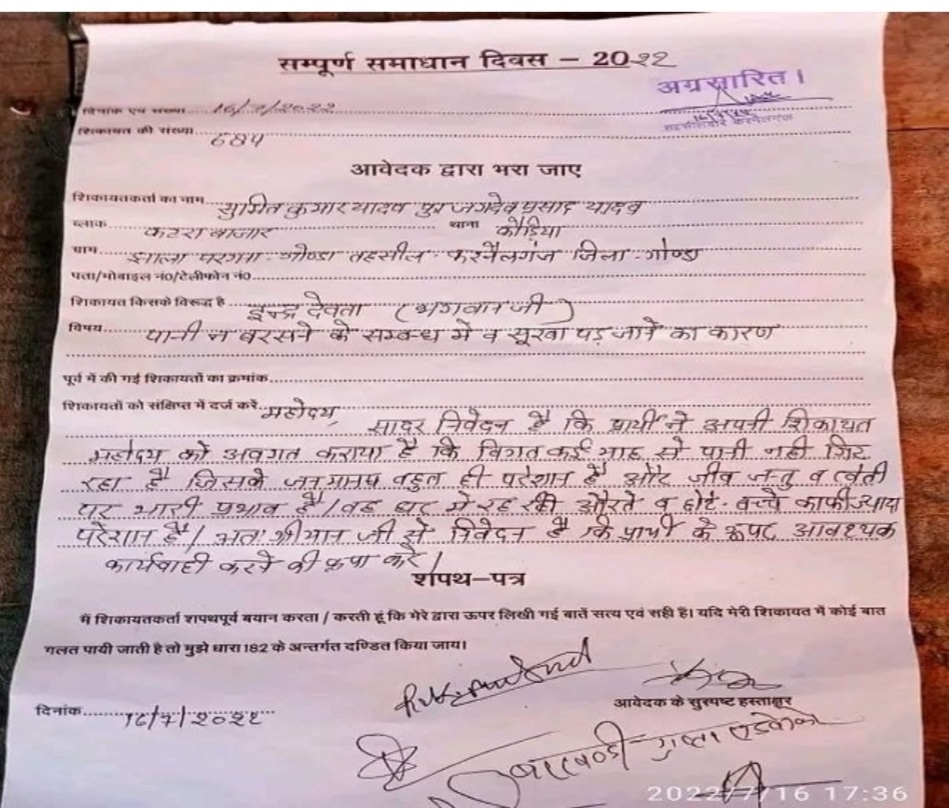 सम्पूर्ण समाधान दिवस – 2022
अग्रसारित।
दिनांक एवं संख्या 16/7/2022
शिकायत की संख्या 684
आवेदक द्वारा भरा जाए
शिकायतकर्ता का नाम सुमित कुमार यादव पुत्र जगदेव प्रसाद यादव
ब्लाक कटरा बाजार थाना कौड़िया
ग्राम झाला परगना गोण्डा तहसील करनैलगंज जिला गोण्डा
पता/मोबाइल नं०/टेलीफोन नं०
शिकायत किसके विरूद्ध है इन्द्र देवता (भगवान जी)
विषय पानी न बरसने के सम्बन्ध में व सूखा पड़ जाने का कारण
पूर्व में की गई शिकायतों का क्रमांक
शिकायतों को संक्षिप्त में दर्ज करें महोदय,
सादर निवेदन है कि प्रार्थी ने अपनी शिकायत
महोदय को अवगत कराया है कि विगत कई माह से पानी नहीं गिर
रहा है जिसके जनमानस बहुत ही परेशान है और जीव जन्तु व खेती
पर भारी प्रभाव है/ वह घर में रह रही औरते व छोटे-बच्चे काफी ज्यादा
परेशान है/ अतः श्रीमान जी से निवेदन है कि प्रार्थी के ऊपर आवश्यक
कार्यवाही करने की कृपा करें/
शपथ–पत्र
मैं शिकायतकर्ता शपथपूर्व बयान करता / करती हूं कि मेरे द्वारा ऊपर लिखी गई बातें सत्य एवं सही है। यदि मेरी शिकायत में कोई बात
गलत पायी जाती है तो मुझे धारा 182 के अन्तर्गत दण्डित किया जाय।
आवेदक के सुस्पष्ट हस्ताक्षर
दिनांक 16/7/2022
2022/7/16 17:36